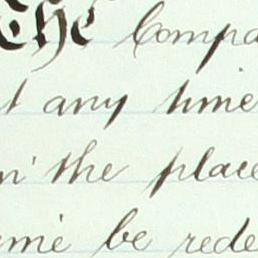 The Compa
t any time
in the place
ame be rede